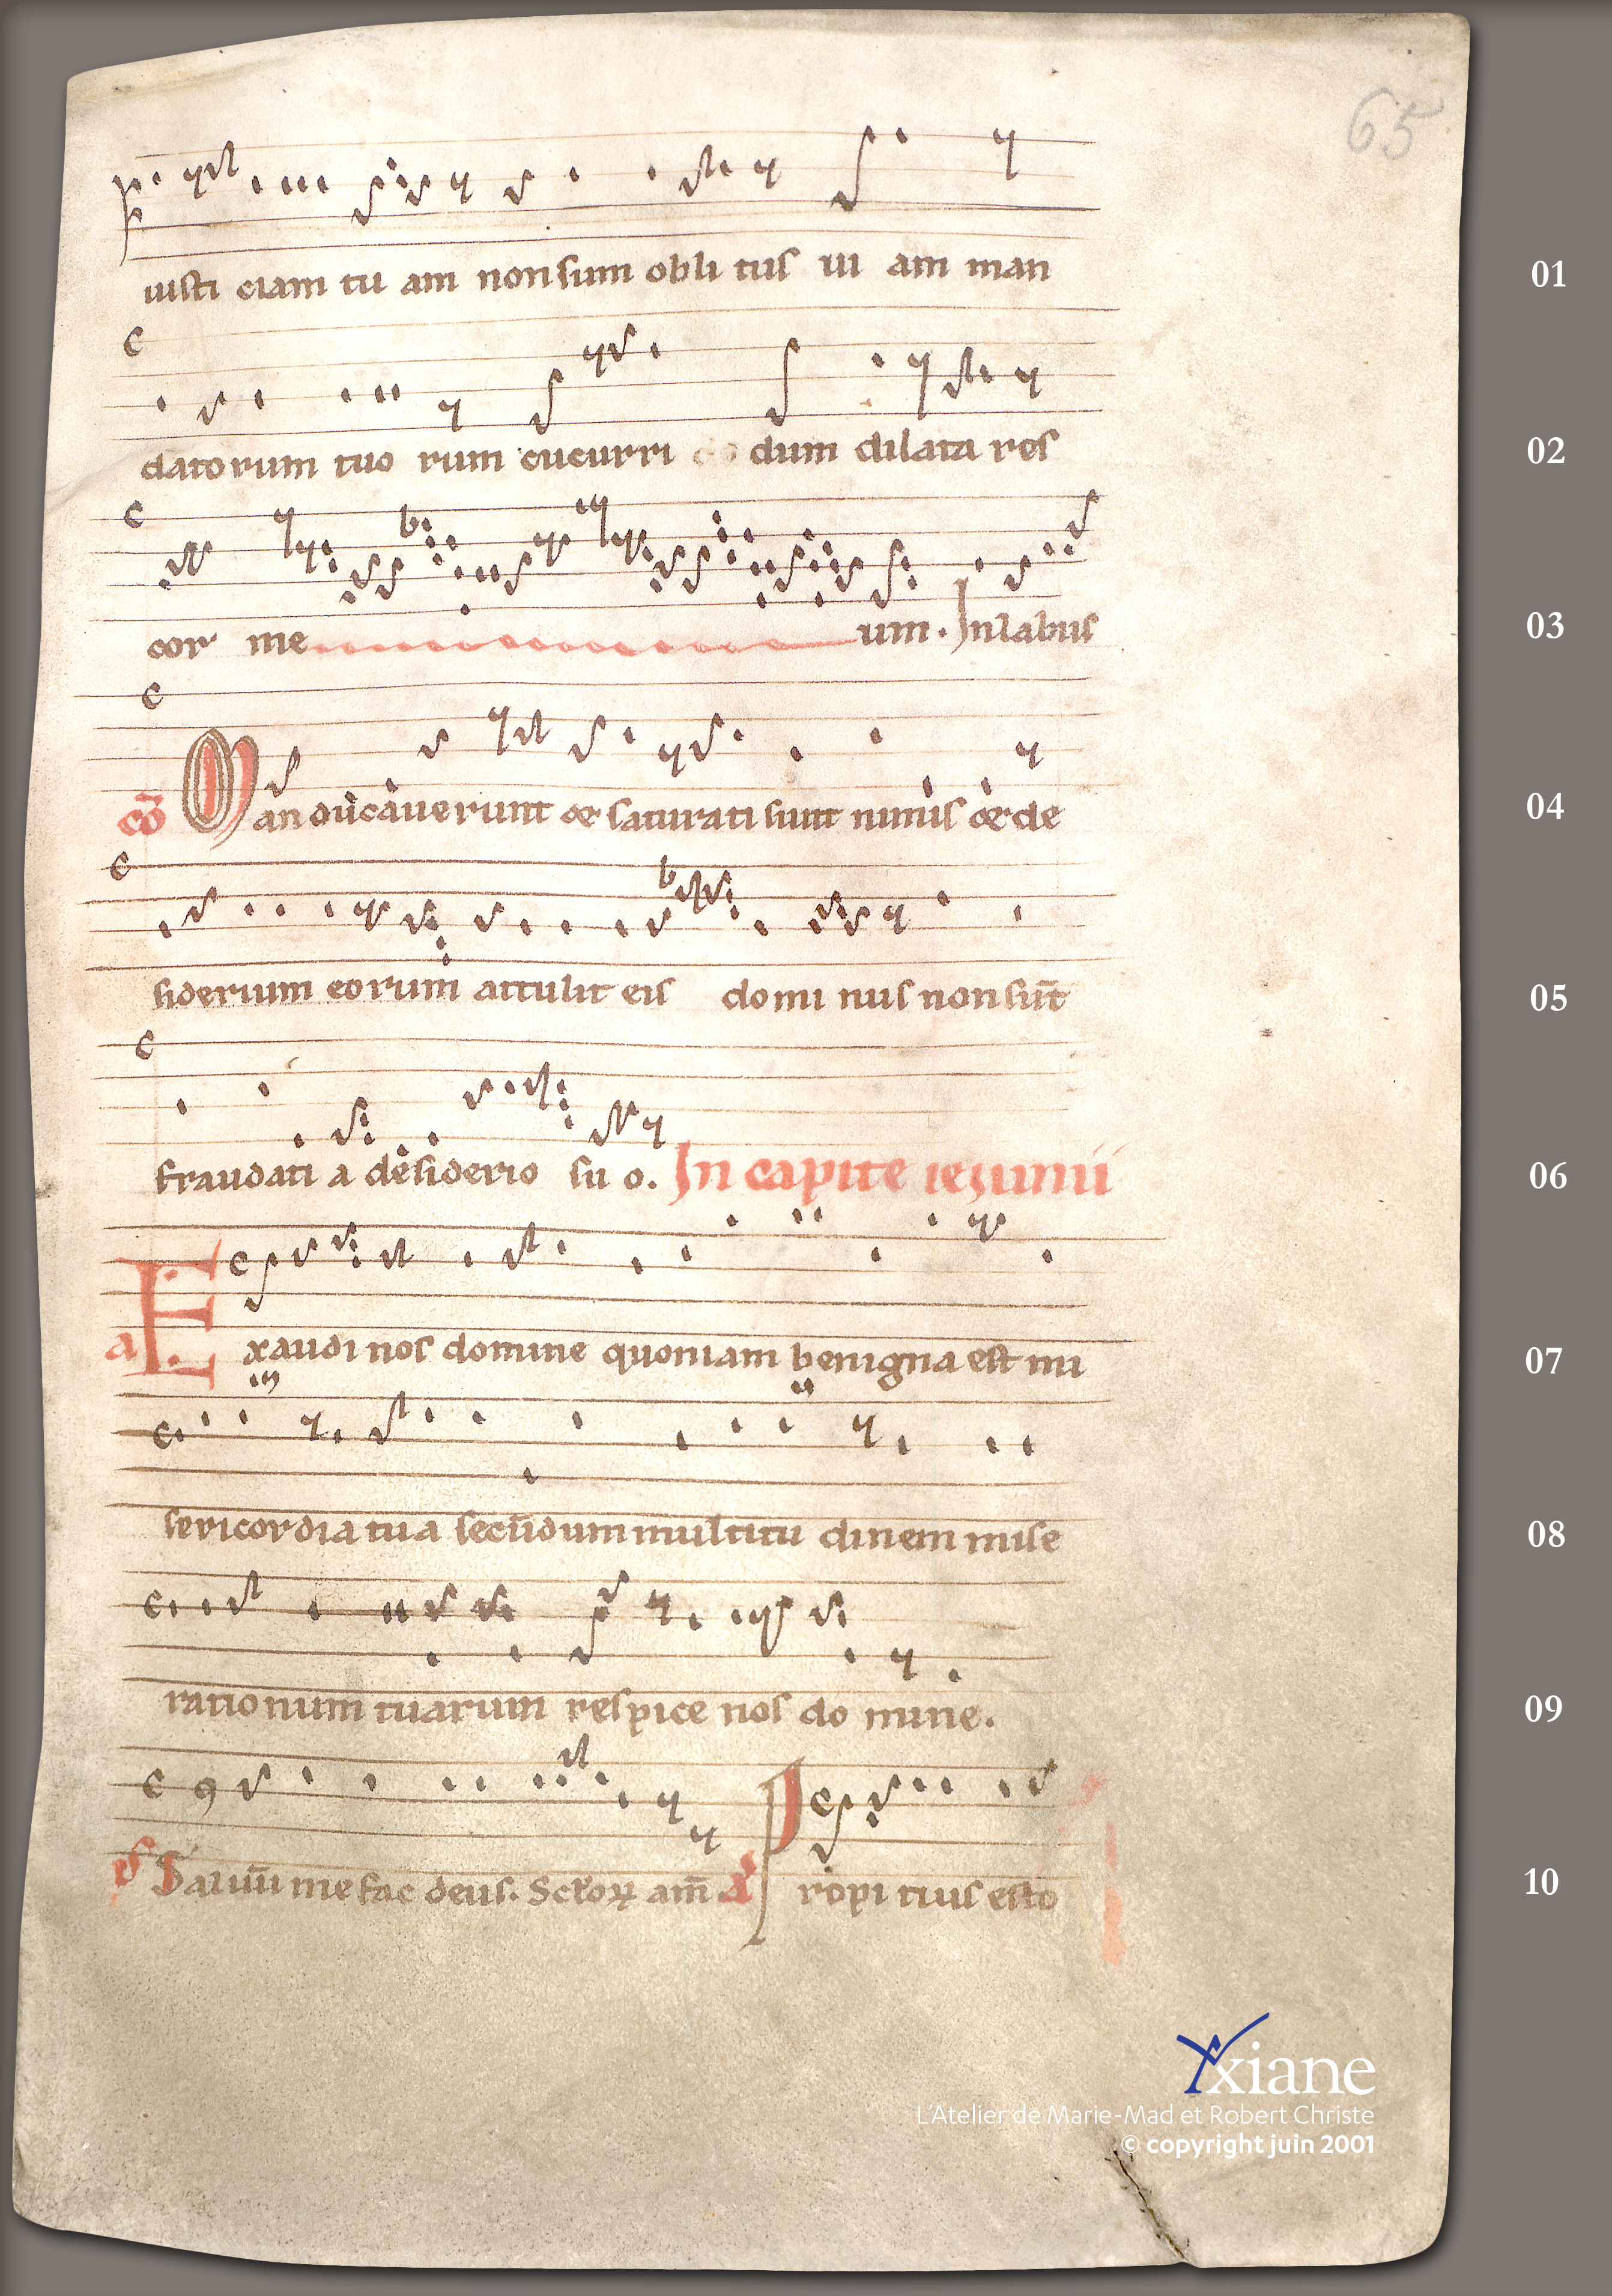 65
iusti eiam tu am non sum obli tus ui am man
01
datorum tuo rum cucurri dum dilata res
02
cor me um. Inlabiis
03
cō Manducauerunt et saturati sunt nimis et de
04
siderium eorum attulit eis domi nus non sunt̄
05
fraudati a desiderio su o. In capite ieiunii
06
a Exaudi nos domine quoniam benigna est mi
07
sericordia tua secūdum multitu dinem mise
08
rationum tuarum respice nos do mine.
09
Saluū me fac deus. Sc̄loꝝ am̄ Propi tius esto
10
Yxiane
L'Atelier de Marie-Mad et Robert Christe
© copyright juin 2001